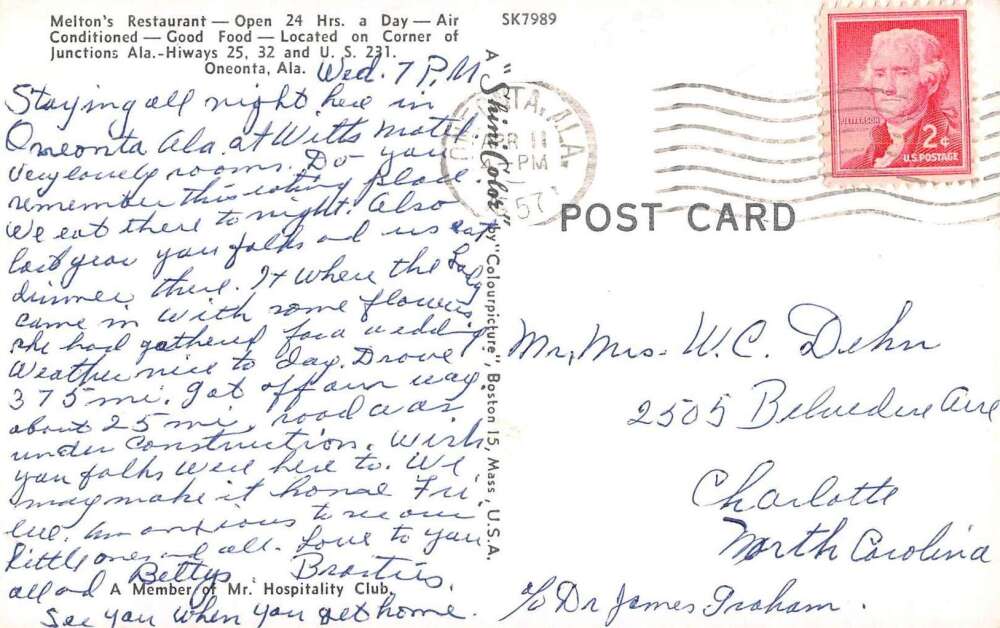 Melton's Restaurant — Open 24 Hrs. a Day — Air
Conditioned — Good Food — Located on Corner of
Junctions Ala.-Hiways 25, 32 and U. S. 231.
Oneonta, Ala.
Wed. 7 P.M
Staying all night here in
Oneonta Ala. at Witts Motel.
Very lovely rooms. Do you
remember this eating place
We eat there to night. Also
last year you folks and us eat
dinner there. It where the lady
came in with some flowers.
she had gathered for a wedding
Weather nice to day. Drove
375 mi. got off our way
about 25 mi. road was
under construction. Wish
you folks were here to. We
may make it home Fri
eve. Am anxious to see our
little ones and all. Love to you
all and Bettys
A Member of Mr. Hospitality Club.
See you when you get home.
SK7989
A "Shini-Color" by "Colourpicture", Boston 15, Mass., U.S.A.
ONEONTA, ALA.
11
PM
1957
JEFFERSON
2¢
U.S. POSTAGE
POST CARD
Mr, Mrs. W.C. Dehn
2505 Belvedere Ave
Charlotte
North Carolina
c/o Dr James Graham.